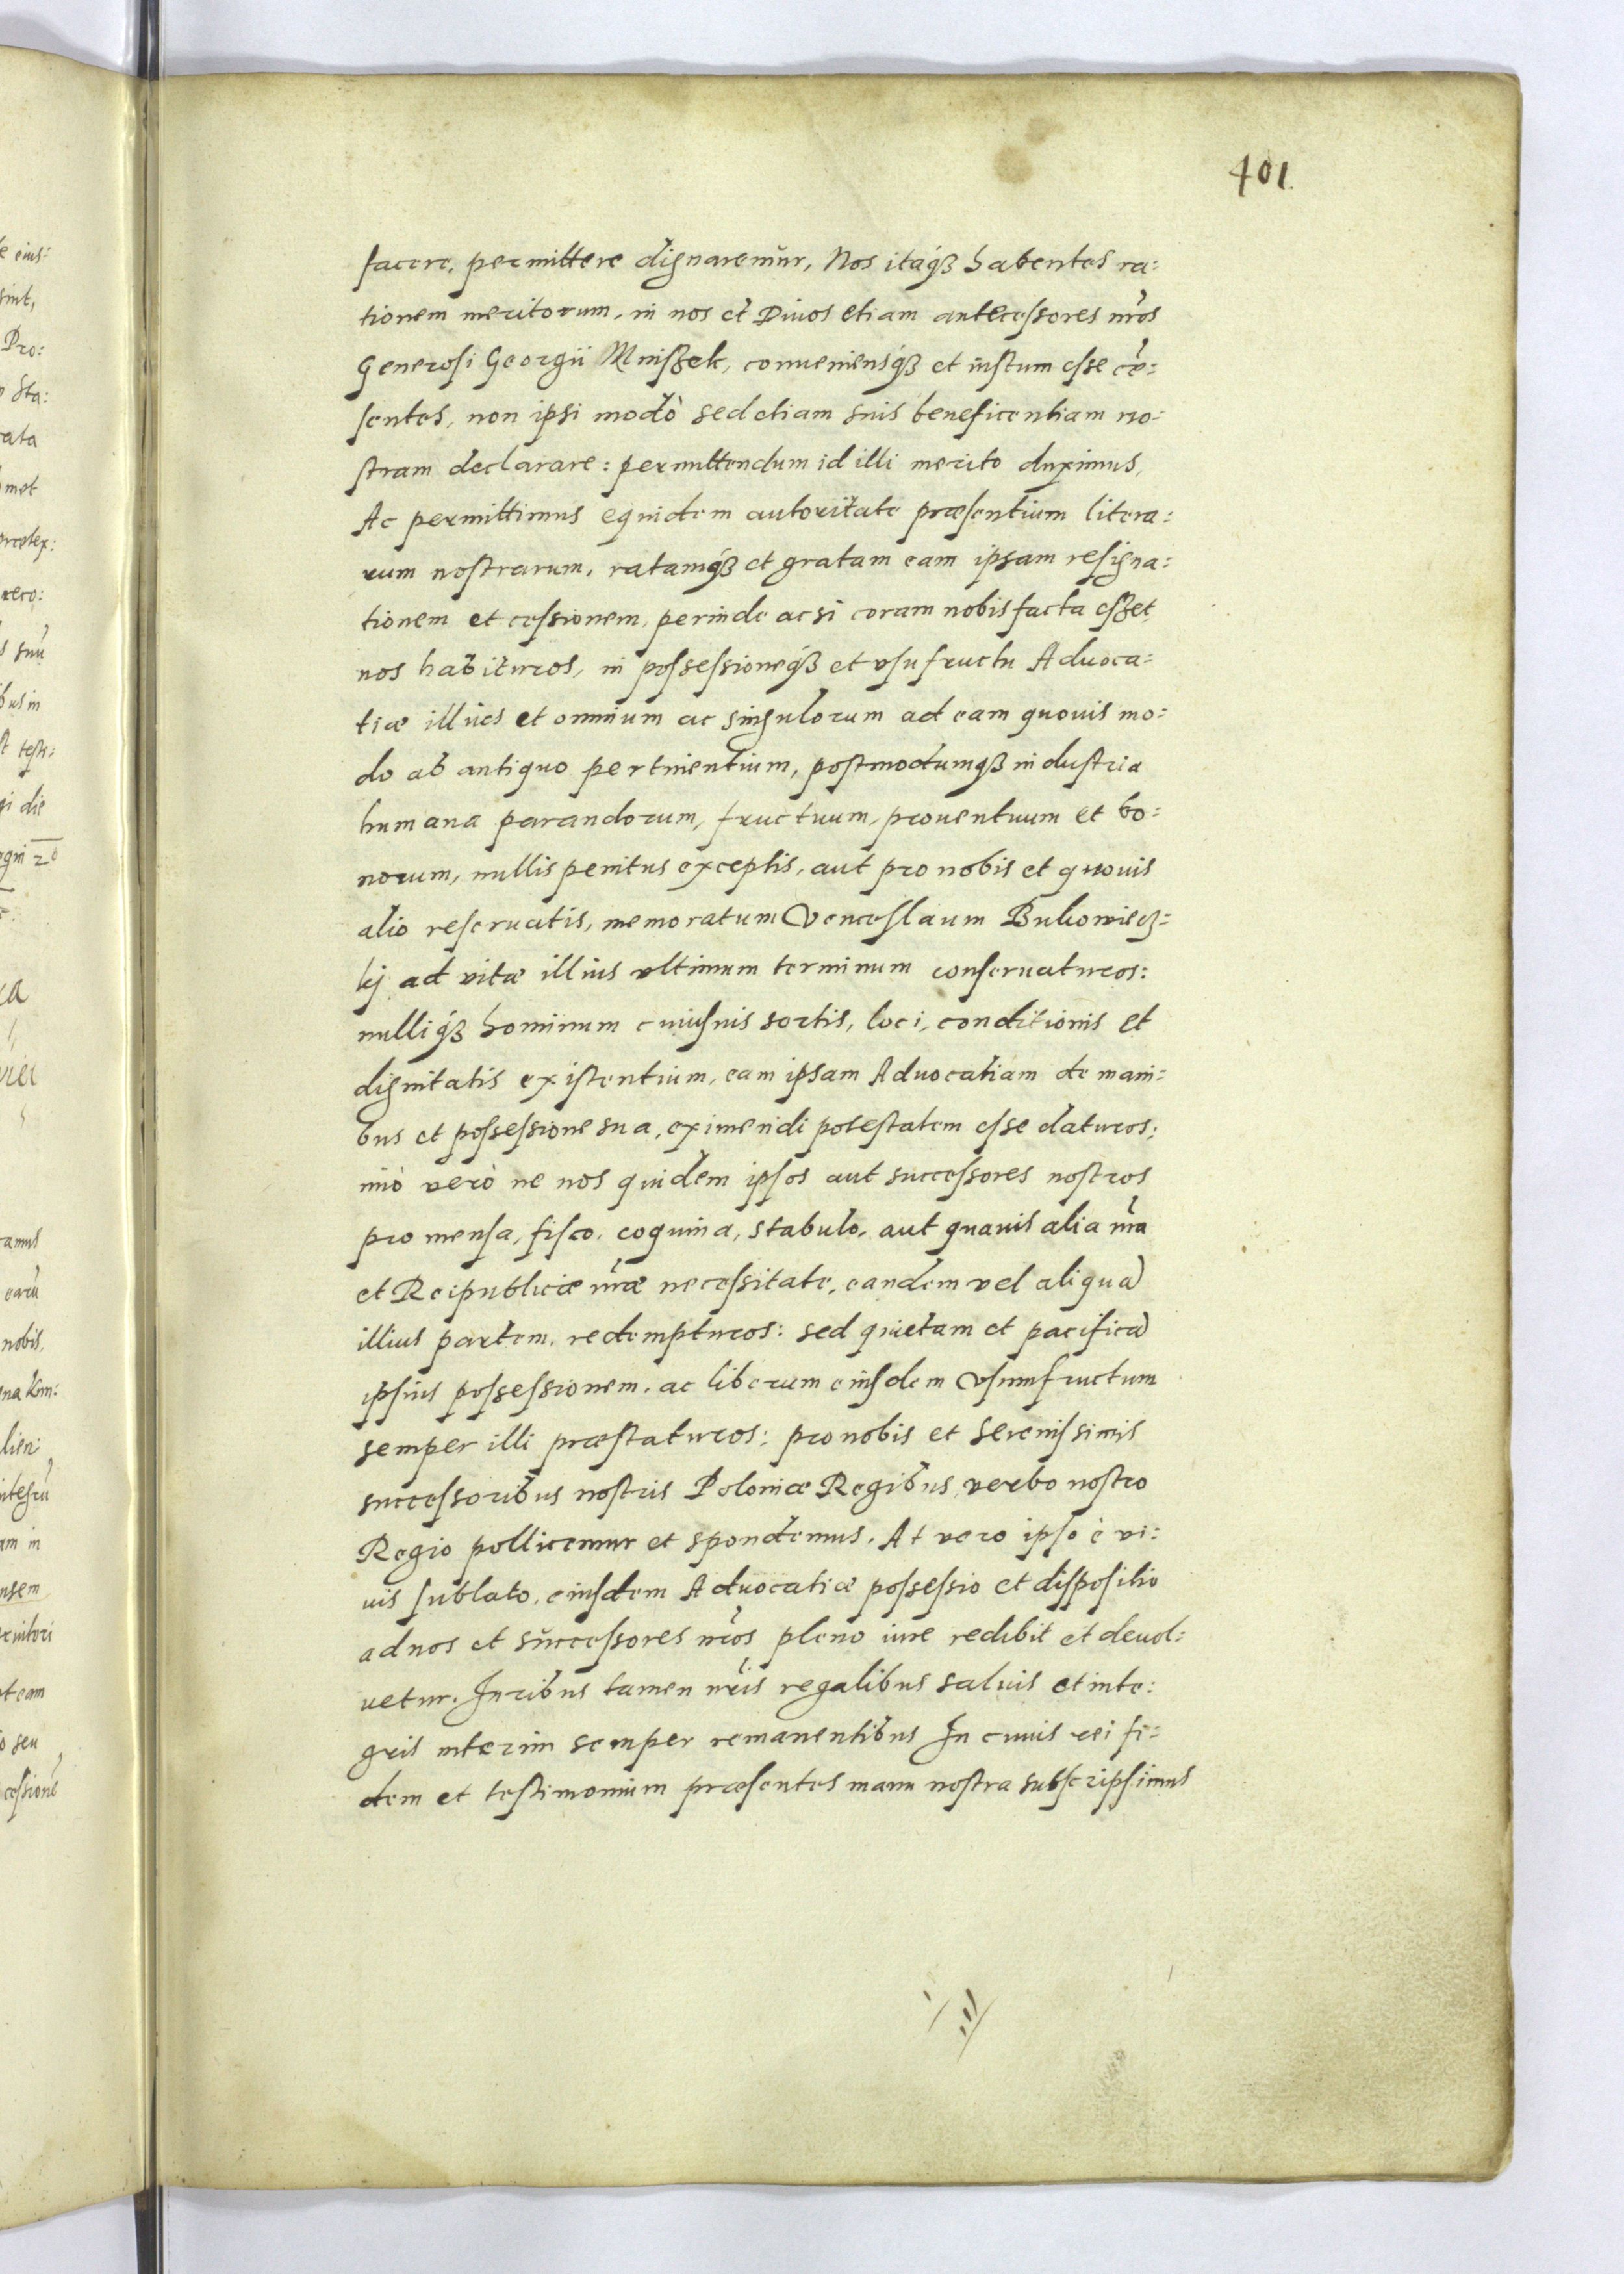 401
facere, permittere dignaremur, Nos itaq́ꝫ habentes ra:
tionem meritorum, in nos et Diuos etiam antecessores nr̃os
Generosi Georgii Mniszek, conueniensq́ꝫ et iustum esse cẽ:
sentes, non ipsi modò sed etiam suis beneficentiam no:
stram declarare: permittendum id illi merito duximus,
Ac permittimus equidem autoritate præsentium litera:
rum nostrarum, ratamq́ꝫ et gratam eam ipsam resigna:
tionem et cessionem, perinde ac si coram nobis facta eszet,
nos habituros, in possessioneq́ꝫ et vsufructu Aduoca:
tiæ illius et omnium ac singulorum ad eam quouis mo:
do ab antiquo pertinentium, postmodumqꝫ industria
humana parandorum, fructuum, prouentuum et bo:
norum, nullis penitus exceptis, aut pro nobis et quouis
alio reseruatis, memoratum Venceslaum Bukowiecz:
kj ad vitæ illius vltimum terminum conseruaturos:
nulliq́ꝫ hominum cuiusuis sortis, loci, conditionis et
dignitatis existentium, eam ipsam Aduocatiam de mani:
bus et possessione sua, eximendi potestatem esse daturos;
imò verò ne nos quidem ipsos aut successores nostros
pro mensa, fisco, coquina, stabulo, aut quauis alia nr̃a
et Reipublicæ nr̃æ necessitate, eandem vel aliquã
illius partem, redempturos: sed quietam et pacificã
ipsius possessionem, ac liberum eiusdem Vsumfructum
semper illi præstaturos; pro nobis et Serenissimis
successoribus nostris Poloniæ Regibus, verbo nostro
Regio pollicemur et spondemus. At vero ipso è vi:
uis sublato, eiusdem Aduocatiæ possessio et dispositio
ad nos et successores nr̃os pleno iure redibit et deuol:
uetur. Iuribus tamen nr̃is regalibus saluis et inte:
gris interim semper remanentibus In cuius rei fi:
dem et testimonium præsentes manu nostra subscripsimus